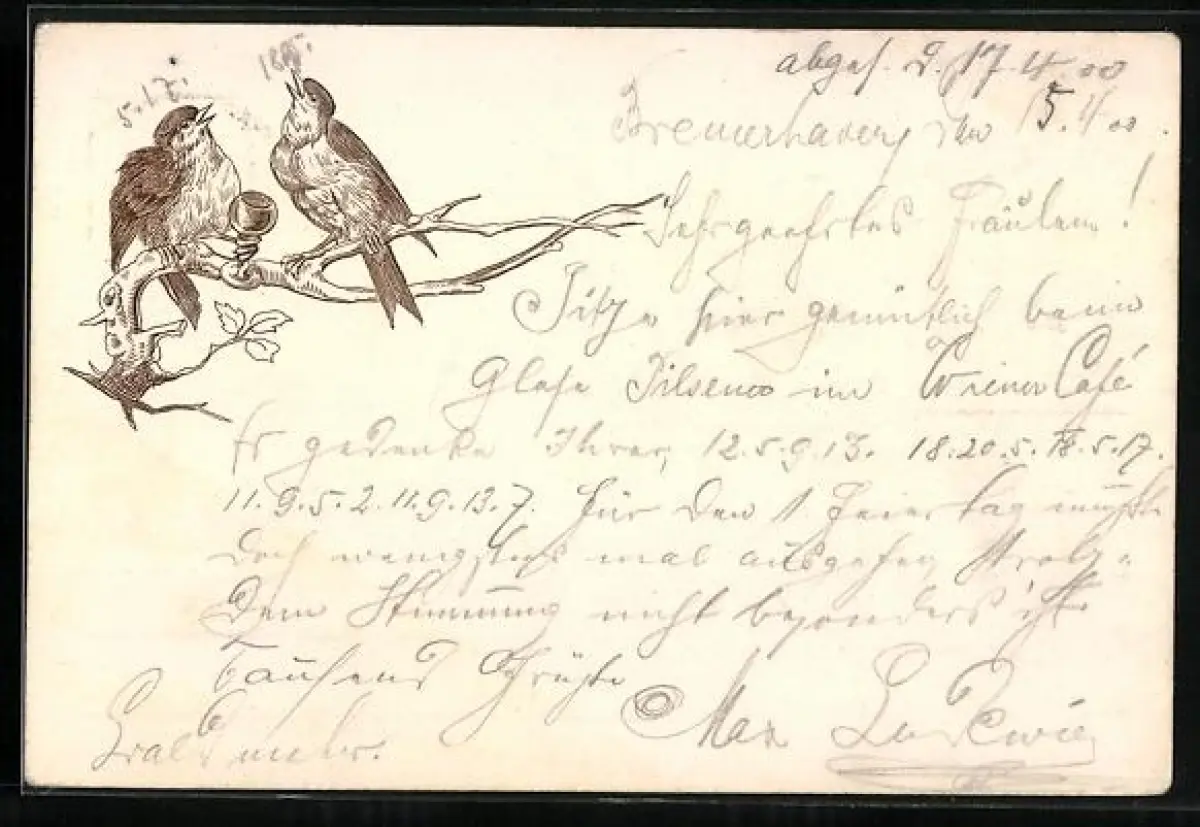 abges. d. 17.4.00
5.17. 18
Bremerhaven den 15.4.00.
Sehrgeehrtes Fräulein!
Sitze hier gemütlich beim
Glase Pilsener im Wiener Café
gedenke Ihrer, 12.5.9.13. 18.20.5.18.5.17.
11.9.5.2.11.9.13.7. Für den 1. Feiertag mußte
doch wenigstens mal ausgehen trotz-
dem Stimmung nicht besonders ist.
Tausend Grüße
Max Ludewig
Bald mehr.